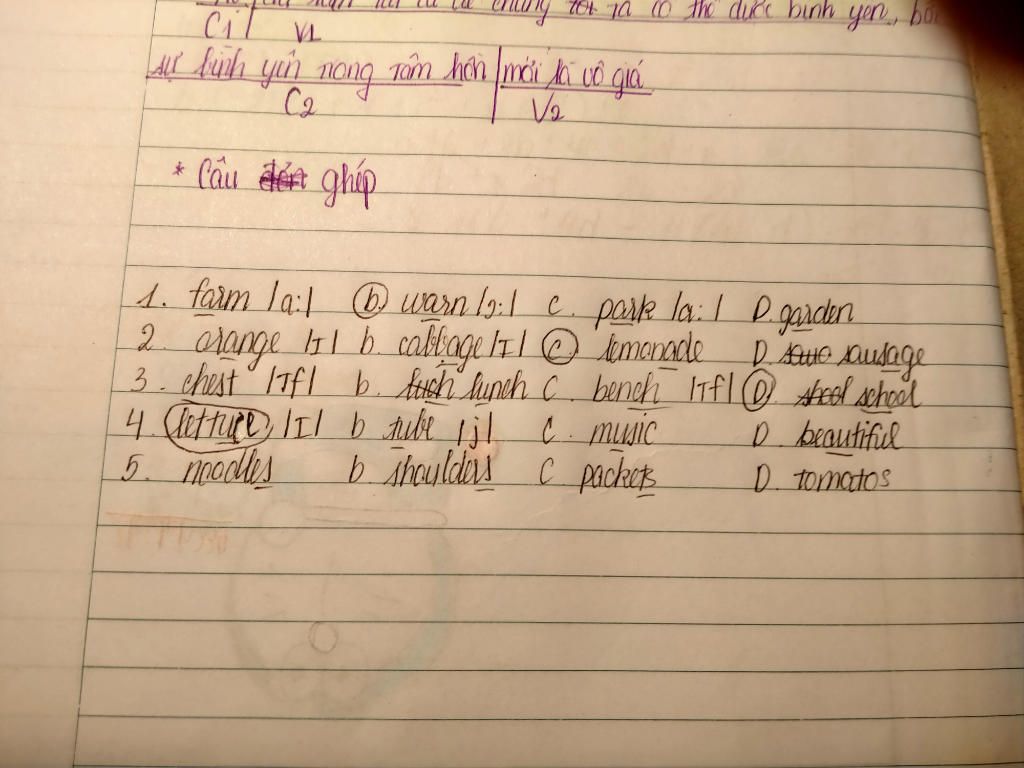 ta có thể được bình yên, bởi
C1 V1
sự bình yên trong tâm hồn mới là vô giá
C2 V2
* Câu ghép
1. farm /a:/ b. warn /ɔ:/ c. park /a:/ D. garden
2. orange /I/ b. cabbage /I/ c lemonade D. sausage
3. chest /Tʃ/ b. lunch C. bench /Tʃ/ D school
4. lettuce /I/ b tube /j/ C. music D. beautiful
5. noodles b. shoulders C packets D. tomatos